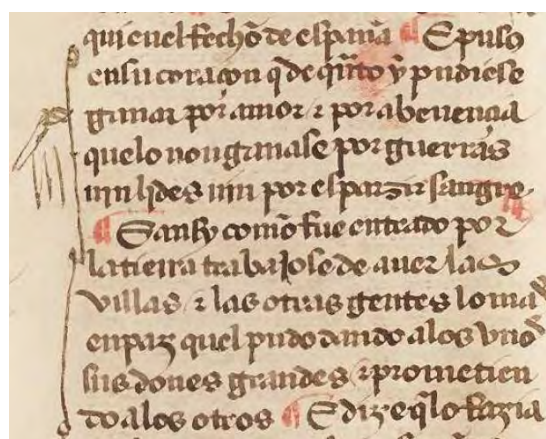 qui en el fechõ de espanã ¶ E puso
en su coraçon q̃ de q̃nto y pudiese
ganar por amor ⁊ por abenençia
que lo non ganase por guerras
nin lides nin por esparzir sangre
¶ E ansy comõ fue entrado por
la tierra trabajose de auer las
villas ⁊ las otras gentes lo mas
en paz quel pudo dando a los vnos
sus dones grandes ⁊ prometien
do a los otros ¶ E dize q̃ lo fazia